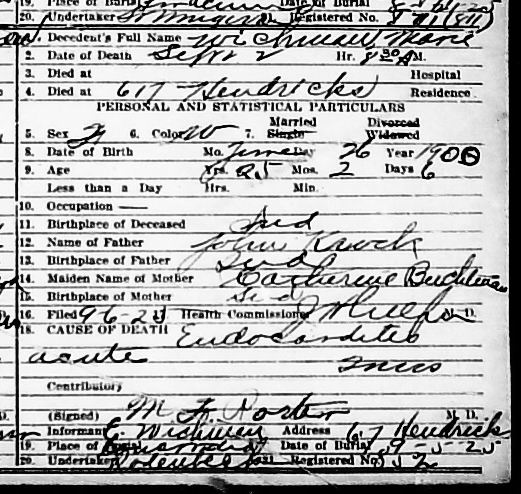 19. Place of Burial Date of Burial
20. Undertaker Registered No.
1. Decedent's Full Name Wichman Marie
2. Date of Death Sept 2 Hr. 8 30 AM.
3. Died at Hospital
4. Died at 617 Hendricks Residence
PERSONAL AND STATISTICAL PARTICULARS
5. Sex F 6. Color W 7. Married Single Divorced Widowed
8. Date of Birth Mo. June Day 26 Year 1900
9. Age Yrs. 25 Mos. 2 Days 6
Less than a Day Hrs. Min.
10. Occupation —
11. Birthplace of Deceased Ind
12. Name of Father John
13. Birthplace of Father Ind
14. Maiden Name of Mother Catherine
15. Birthplace of Mother
16. Filed 9 6-25 Health Commissioner M. D.
18. CAUSE OF DEATH Endocarditis
acute
Contributory
(Signed) M F Porter M. D.
Informant E. Wichman Address 617 Hendricks
19. Place of Burial Date of Burial 9-5-25
20. Undertaker Registered No.